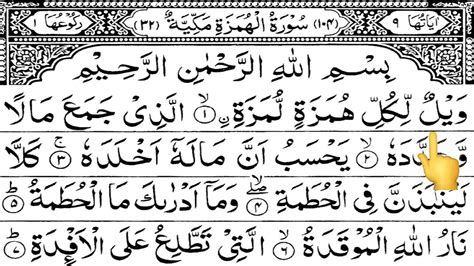 اٰیَاتُهَا ۹ (۱۰۴) سُوْرَةُ الْهُمَزَةِ مَكِّیَّةٌ (۳۲) رُكُوْعُهَا ۱
بِسْمِ اللّٰهِ الرَّحْمٰنِ الرَّحِیْمِ
وَیْلٌ لِّكُلِّ هُمَزَةٍ لُّمَزَةِ ۙ۱ الَّذِیْ جَمَعَ مَالًا
یَحْسَبُ اَنَّ مَالَهٗۤ اَخْلَدَهٗ ۚ۳ كَلَّا
لَیُنْۢبَذَنَّ فِی الْحُطَمَةِ ۖ۴ وَمَاۤ اَدْرٰىكَ مَا الْحُطَمَةُ ؕ۵
نَارُ اللّٰهِ الْمُوْقَدَةُ ۙ۶ الَّتِیْ تَطَّلِعُ عَلَی الْاَفْـِٕدَةِ ؕ۷